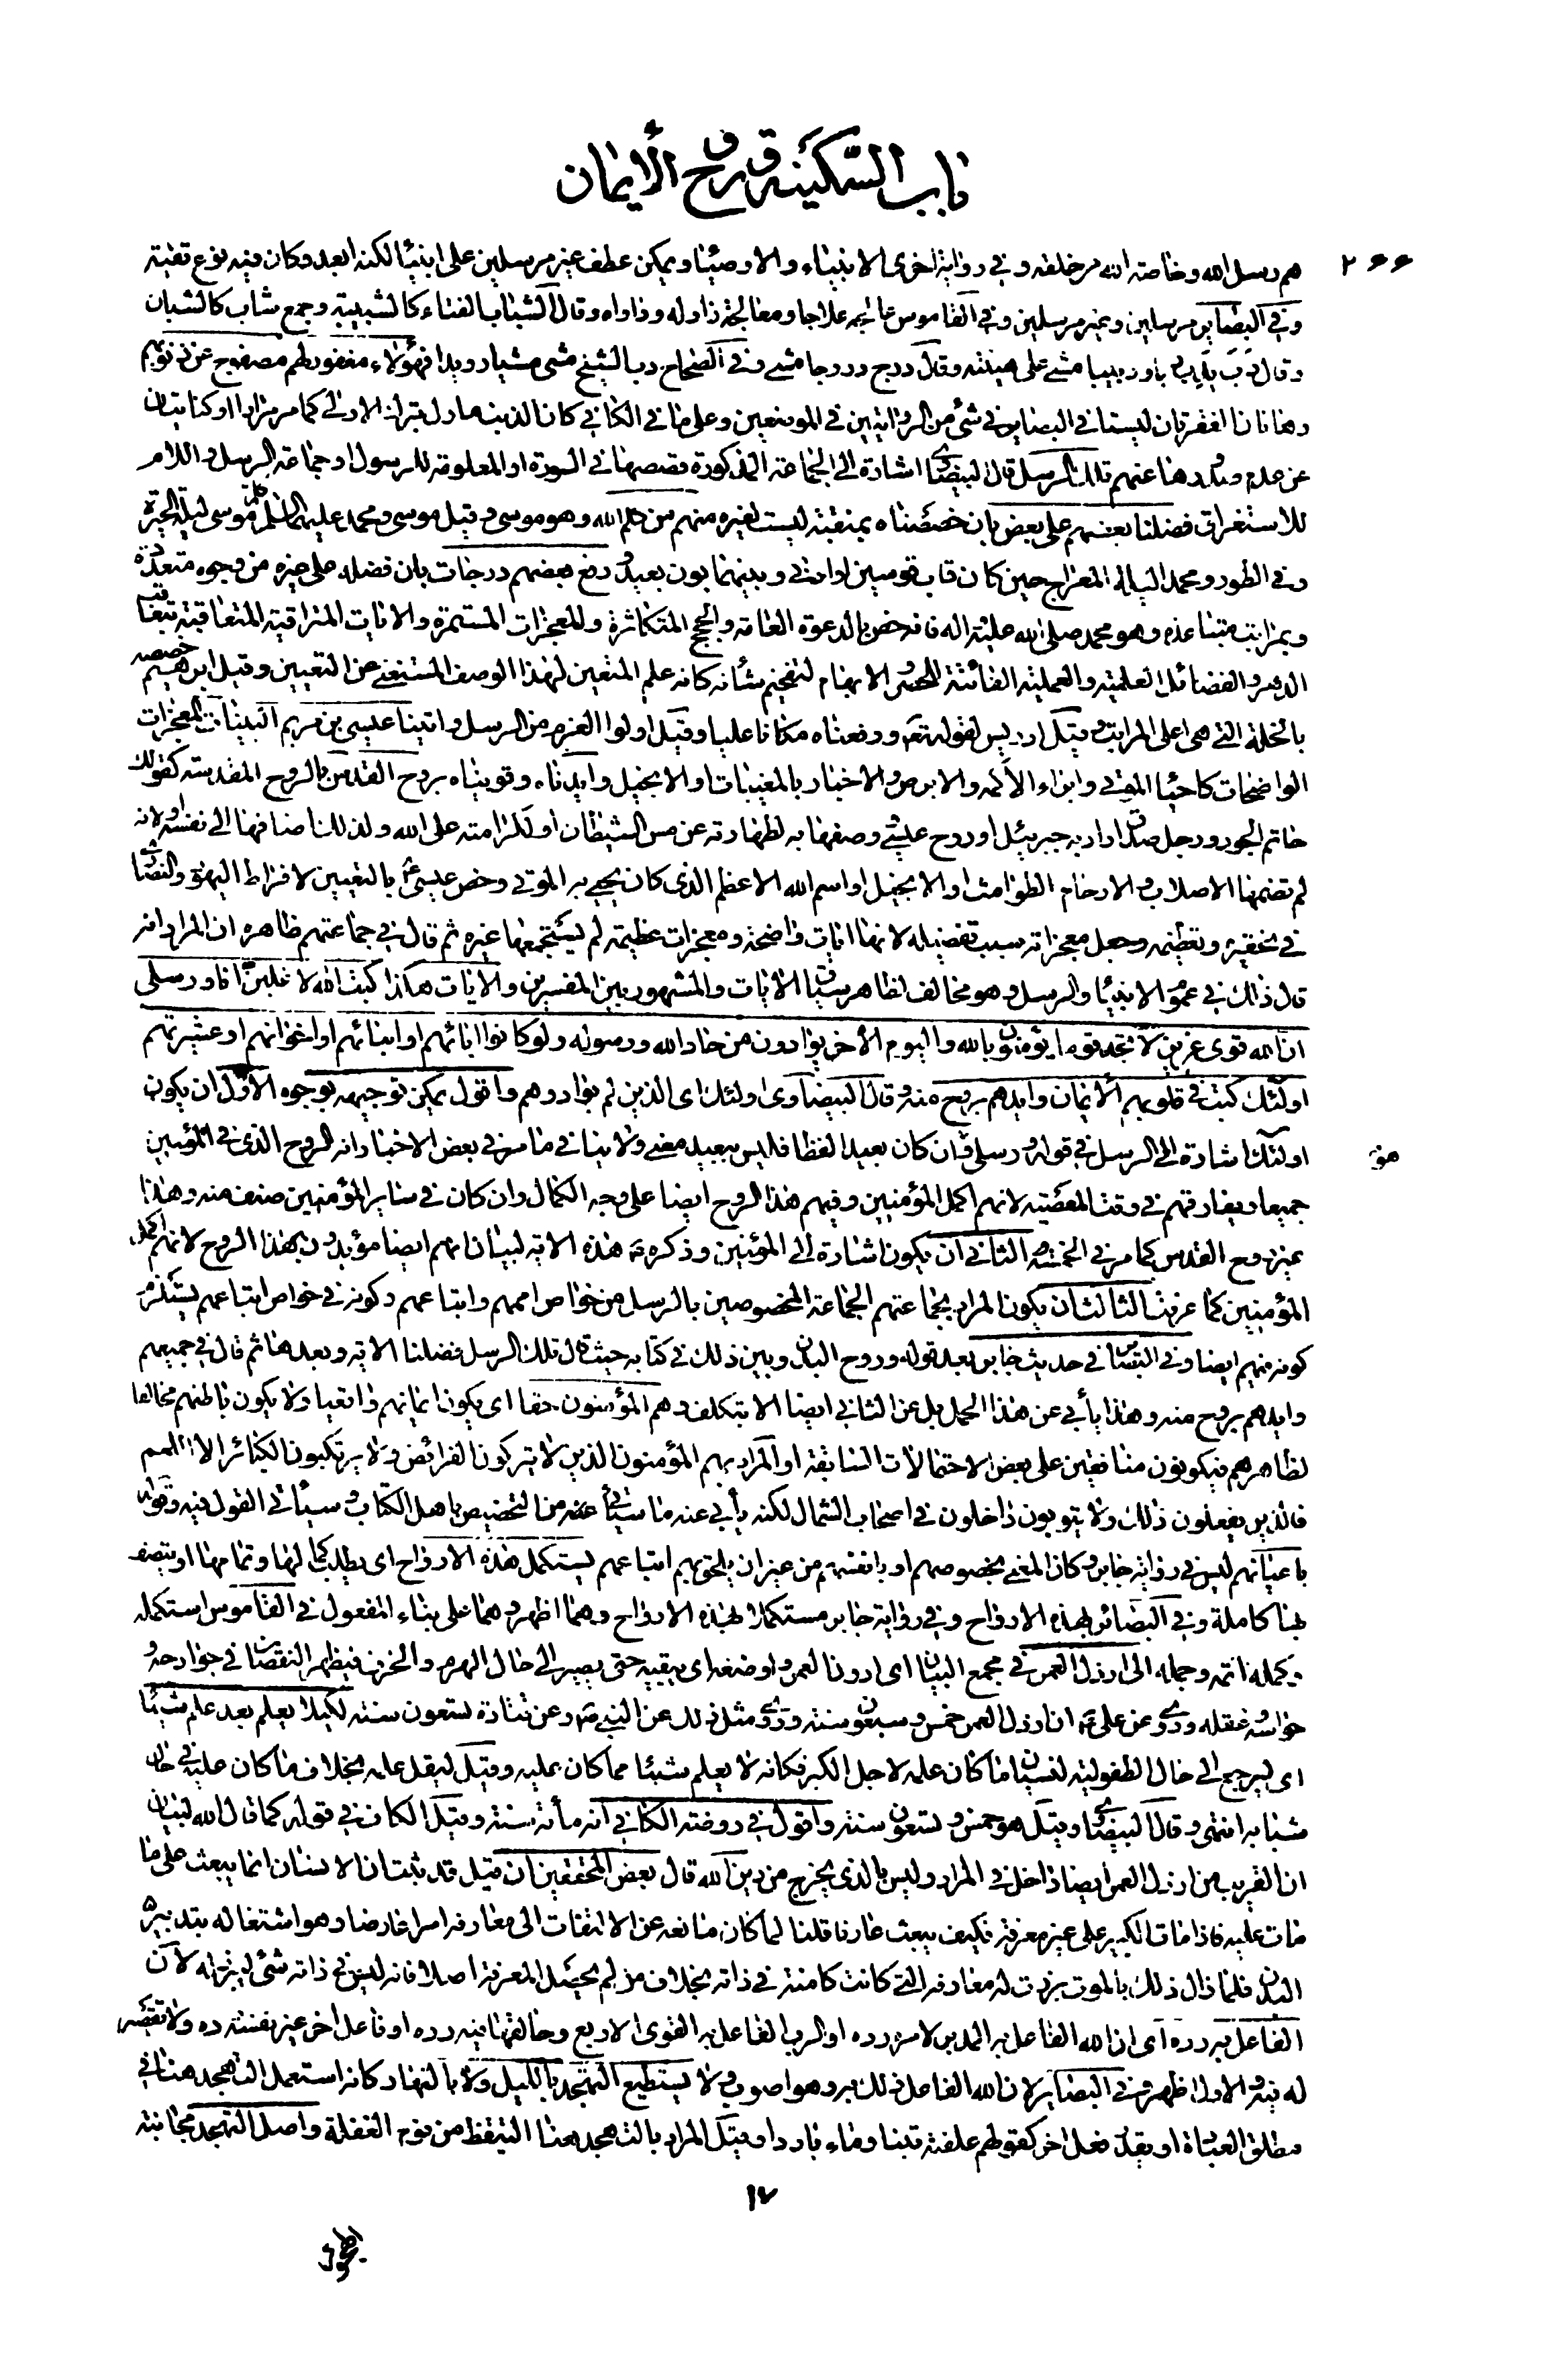 باب السّكينة و روح الأيمان
٢٦٦
هم رسل الله وخاصة الله من خلقه و في رواية اخرى الانبياء و الاوصياء ويمكن عطف غير مرسلين على انبياء لكنه ابعد وكان فيه نوع تقية
وفي البصاير مرسلين وغير مرسلين وفي القاموس عالجه علاجا ومعالجة زاوله وداواه وقال الشباب الفتاء كالشبيبة وجمع شاب كالشبان
وقال دبّ يدبّ دبا ودبيبا مشى على هينته وقال درج دروجا مشى وفي الصحاح دب الشيخ مشى مشيا رويدا فهؤلاء مغفور لهم مصفوح عن ذنوبهم
وهاتان الفقرتان ليستا في البصاير في شئ من الروايتين في الموضعين وعلى ما في الكافي كان الذنب هاول بترك الاولى كما مر مرارا او كنايتان
عن عدم صدورها عنهم تلك الرسل قال البيضاوي اشارة الى الجماعة المذكورة قصصها في السورة او المعلومة للرسول او جماعة الرسل و اللام
للاستغراق فضلنا بعضهم على بعض بان خصصناه بمنقبة ليست لغيره منهم من كلم الله وهو موسى و قيل موسى ومحمد عليهما السلم كلم موسى ليلة الحيرة
وفي الطور ومحمدا ليلة المعراج حين كان قاب قوسين او ادنى وبينهما بون بعيد ورفع بعضهم درجات بان فضله على غيره من وجوه متعددة
وبمراتب متباعدة وهو محمد صلى الله عليه واله فانه خص بالدعوة العامة والحجج المتكاثرة والمعجزات المستمرة والايات المتراقية المتعاقبة بتعاقب
الدهر والفضائل العلمية والعملية الفائتة للحصر والابهام لتفخيم شأنه كانه علم المتعين لهذا الوصف المستغنى عن التعيين وقيل ابرهيم خصصه
بالخلة التي هي اعلى المراتب وقيل ادريس لقوله تعم ورفعناه مكانا عليا وقيل اولوا العزم من الرسل واتينا عيسى بن مريم البينات المعجزات
الواضحات كاحياء الموتى وابراء الأكمه والابرص والاخبار بالمغيبات او الانجيل وايدناه وقويناه بروح القدس بالروح المقدسة كقولك
حاتم الجود ورجل صدق اراد به جبرئيل او روح عيسى وصفها به لطهارته عن مس الشيطان او لكرامته على الله ولذلك اضافها الى نفسه او لانه
لم تضمها الاصلاب و الارحام الطوامث او الانجيل او اسم الله الاعظم الذي كان يحيى به الموتى وخص عيسى ع بالتعيين لافراط اليهود والنصارى
في تحقيره وتعظيمه وجعل معجزاته سبب تفضيله لانها ايات واضحة ومعجزات عظيمة لم يستجمعها غيره ثم قال في جماعتهم ظاهره ان المراد انه
قال ذلك في عموم الانبياء والرسل وهو مخالف لظاهر سياق الايات والمشهور بين المفسرين والايات هكذا كتب الله لاغلبن انا ورسلي
انّ الله قوى عزيز لا تجد قوما يؤمنون بالله واليوم الأخر يوادون من حاد الله ورسوله ولو كانوا ابائهم او ابنائهم او اخوانهم او عشيرتهم
اولئك كتب في قلوبهم الأيمان وايدهم بروح منه وقال البيضاوى اولئك اى الذين لم يوادوهم واقول يمكن توجيهه بوجوه الاوّل ان يكون
اولئك اشارة الى الرسل في قوله ورسلى وان كان بعيدا لفظا فليس ببعيد معنى ولا ينافى ما مر في بعض الاخبار انه الروح الذى فى المؤمنين
جميعا ويفارقهم في وقت المعصية لانهم اكمل المؤمنين وفيهم هذا الروح ايضا على وجه الكمال وان كان في ساير المؤمنين صنف منه وهذا
غير روح القدس كما مر في الخمسة الثاني ان يكون اشارة الى المؤمنين وذكره تع هذه الاية لبيان انهم ايضا مؤيدون بهذا الروح لانهم اكمل
المؤمنين كما عرفت الثالث ان يكون المراد بجماعتهم الجماعة المخصوصين بالرسل من خواص اممهم واتباعهم وكونه في خواص اتباعهم يستلزم
كونه فيهم ايضا وفي البصاير في حديث جابر بعد قوله وروح البدن وبين ذلك في كتابه حيث قال تلك الرسل فضلنا الاية وبعدها ثم قال في جميعهم
وايدهم بروح منه وهذا يأبى عن هذا الحمل بل عن الثاني ايضا الا بتكلف وهم المؤمنون حقا اى يكون ايمانهم واقعيا ولا يكون باطنهم مخالفا
لظاهرهم فيكونون منافقين على بعض الاحتمالات السابقة او المراد بهم المؤمنون الذين لا يتركون الفرائض ولا يرتكبون الكبائر الا اللمم
فالذين يفعلون ذلك ولا يتوبون داخلون في اصحاب الشمال لكنه يأبى عنه ما سيأتي من التخصيص باهل الكتاب وسيأتي القول فيه وقوله
باعيانهم ليس في رواية جابر وكان المعنى بخصوصهم او بانفسهم من غير ان يلحق بهم اتباعهم يستكمل هذه الارواح اى يطلب كمالها وتمامها او يتصف
بها كاملة وفي البصائر بهذه الارواح وفي رواية جابر مستكملا بهذه الارواح وهما اظهر وهما على بناء المفعول في القاموس استكمله
وكمله اتمه وجمله الى ارذل العمر في مجمع البيان اى ادون العمر واوضعه اى يبقيه حتى يصير الى حال الهرم والخرف فيظهر النقصان في جوارحه و
حواسه وعقله وروى عن على ع ان ارذل العمر خمس وسبعون سنة وروى مثل ذلك عن النبي ص وعن قتادة تسعون سنة لكيلا يعلم بعد علم شيئا
اى ليرجع الى حال الطفولية لنسيان ما كان علمه لاجل الكبر فكانه لا يعلم شيئا مما كان عليه وقيل ليقل علمه بخلاف ما كان عليه في حال
شبابه انتهى وقال البيضاوي وقيل هو خمس وتسعون سنة واقول في روضة الكافي انه مأة سنة وقيل الكاف في قوله كما قال الله لبيان
ان القريب من ارذل العمر ايضا داخل في المراد وليس بالذي يخرج من دين الله قال بعض المحققين ان قيل قد ثبت ان الانسان انما يبعث على ما
مات عليه فاذا مات الكبير على غير معرفة فكيف يبعث عارفا قلنا لما كان مانعه عن الالتفات الى معارفه امرا عارضا وهو اشتغاله بتدبير
البدن فلما زال ذلك بالموت برزت له معارفه التي كانت كامنة في ذاته بخلاف من لم يحصل المعرفة اصلا فانه ليس في ذاته شئ ليبرز له لأن
الفاعل به رده اى ان الله الفاعل به المدبر لامره رده او الرب الفاعل به القوى الاربع وخالقها فيه رده او فاعل اخر غير نفسه رده ولا تقصير
له فيه والاول اظهر وفي البصاير لان الله الفاعل ذلك به وهو اصوب ولا يستطيع التهجد بالليل ولا بالنهار كانه استعمل التهجد هنا في
مطلق العبادة او يقدر فعل اخر كقولهم علفته تبنا وماء باردا وقيل المراد بالتهجد هنا التيقظ من نوم الغفلة واصل التهجد مجانبة
١٧